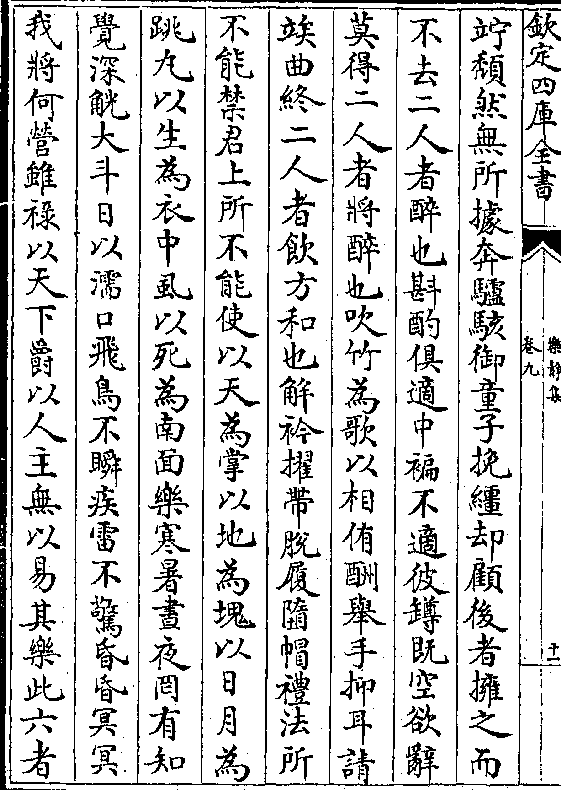 欽定四庫全書
樂靜集
卷九
十一
竚頽然無所據奔驢駭御童子挽繮却顧後者擁之而
不去二人者醉也斟酌俱適中褊不適彼罇既空欲辭
莫得二人者將醉也吹竹為歌以相侑酬舉手抑耳請
竢曲終二人者飲方和也解衿擢帶脫履隨帽禮法所
不能禁君上所不能使以天為掌以地為塊以日月為
跳丸以生為衣中虱以死為南面樂寒暑晝夜罔有知
覺深觥大斗日以濡口飛鳥不瞬疾雷不驚昏昏冥冥
我將何營雖祿以天下爵以人主無以易其樂此六者